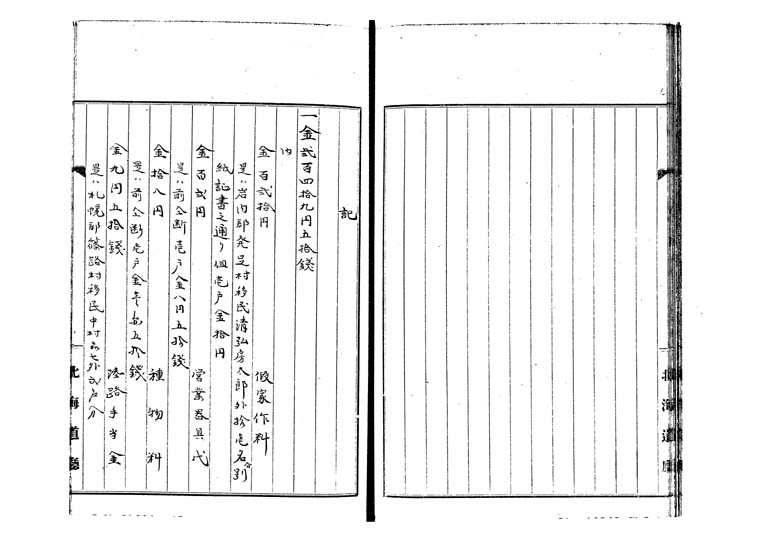 記
一金弐百四拾九円五拾銭
内
金百弐拾円 仮家作料
是ハ岩内郡発足村移民清弘房太郎外拾壱名分別
紙証書之通リ但壱戸金拾円
金百弐円 営業器具代
是ハ前公断壱戸金八円五拾銭
金拾八円 種物料
是ハ前公断壱戸金壱円五拾銭
金九円五拾銭 陸路手当金
是ハ札幌郡篠路村移民中村 七外弐戸分
北海道庁
北海道庁